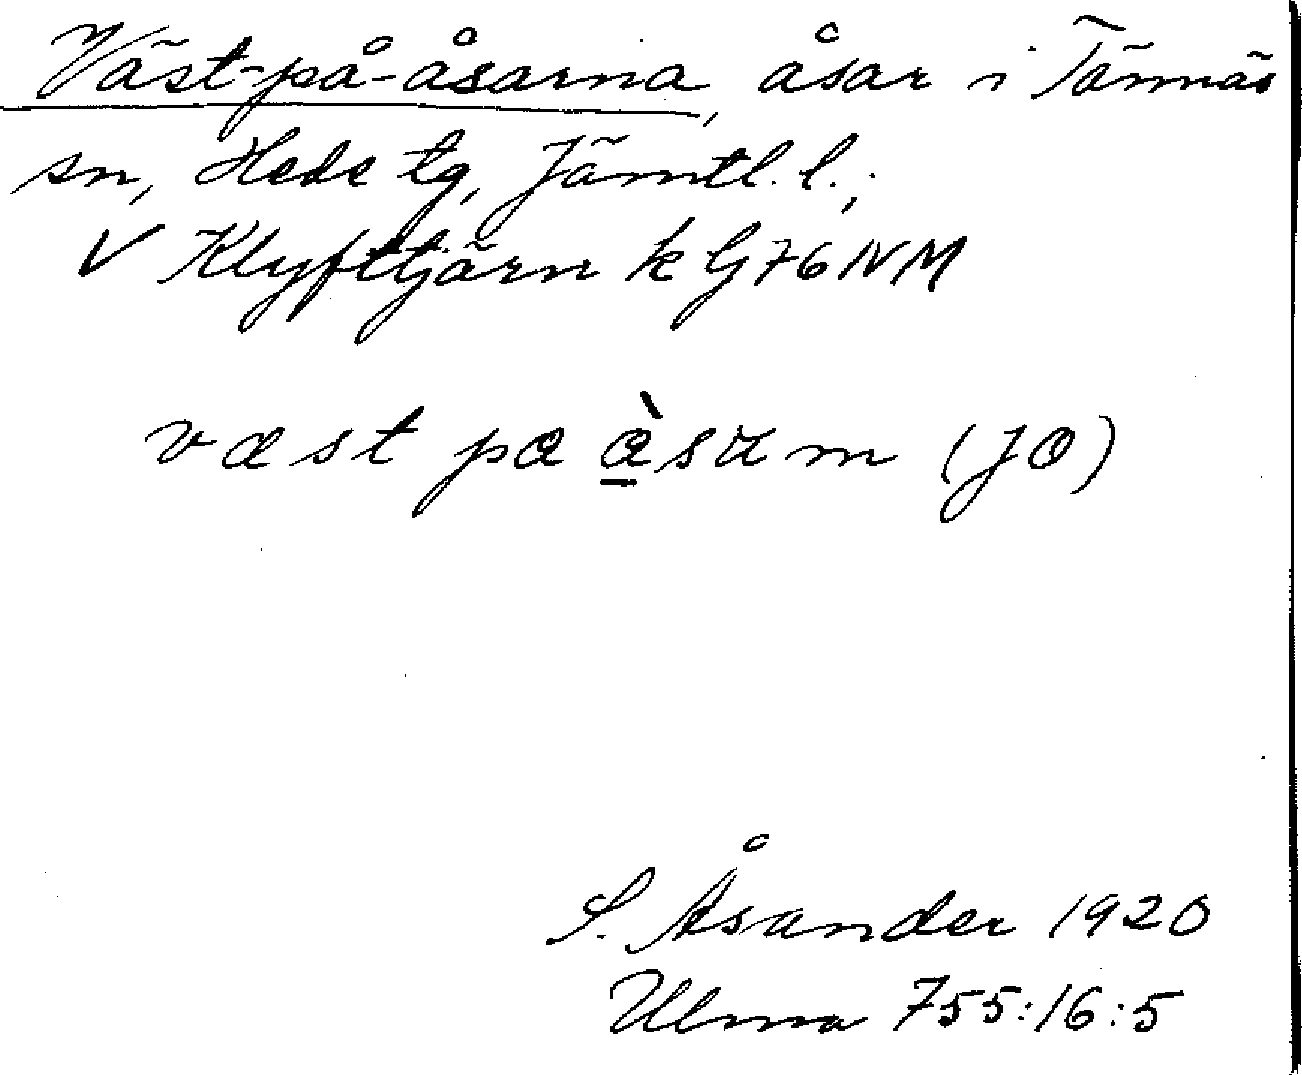 Väst-på-åsarna, åsar i Tännäs
sn, Hede tg, Jämtl. l.;
V Klyfttjärn k G76NM
væst pa à̱sum (JO)
S. Åsander 1920
Ulma 755:16:5